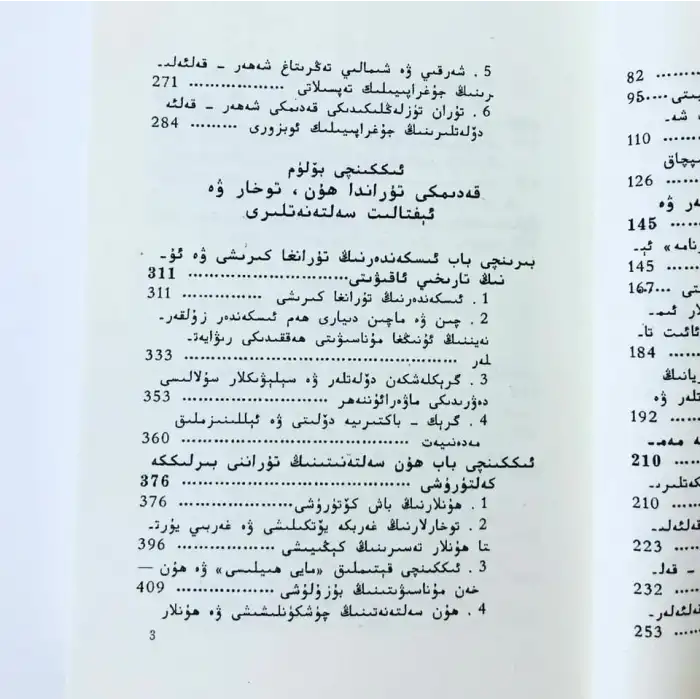 5 . شەرقىي ۋە شىمالىي تەڭرىتاغ شەھەر - قەلئەلى-
رىنىڭ جۇغراپىيىلىك تەپسىلاتى ................... 271
6 . تۇران تۈزلەڭلىكىدىكى قەدىمكى شەھەر - قەلئە
دۆلەتلىرىنىڭ جۇغراپىيىلىك ئوبزورى ......... 284
ئىككىنچى بۆلۈم
قەدىمكى تۇراندا ھۇن ، توخار ۋە
ئېفتالىت سەلتەنەتلىرى
بىرىنچى باب ئىسكەندەرنىڭ تۇرانغا كىرىشى ۋە ئۇ-
نىڭ تارىخىي ئاقىۋىتى........................ 311
1 . ئىسكەندەرنىڭ تۇرانغا كىرىشى ................ 311
2 . چىن ۋە ماچىن دىيارى ھەم ئىسكەندەر زۇلقەر-
نەيىننىڭ ئۇنىڭغا مۇناسىۋىتى ھەققىدىكى رىۋايەت-
لەر ........................................ 333
3 . گرېكلەشكەن دۆلەتلەر ۋە سېلېۋىكىلار سۇلالىسى
دەۋرىدىكى ماۋەرائۇننەھر .................... 353
4 . گرېك - باكتىرىيە دۆلىتى ۋە ئېللىنىزملىق
مەدەنىيەت .................................. 360
ئىككىنچى باب ھۇن سەلتەنىتىنىڭ تۇراننى بىرلىككە
كەلتۈرۈشى ................................. 376
1 . ھۇنلارنىڭ باش كۆتۈرۈشى..................... 376
2 . توخارلارنىڭ غەربكە يۆتكىلىشى ۋە غەربىي يۇرت-
تا ھۇنلار تەسىرىنىڭ كېڭىيىشى ................ 396
3 . ئىككىنچى قېتىملىق «مايى ھىيلىسى» ۋە ھۇن —
خەن مۇناسىۋىتىنىڭ بۇزۇلۇشى .................. 409
4 . ھۇن سەلتەنەتىنىڭ چۈشكۈنلىشىشى ۋە ھۇنلار
3
82 .........
95....
110
126 ......
145 ......
145 ......
167....
184 ....
192 ....
210 ......
210 ......
223 ......
232 ......
253 ......